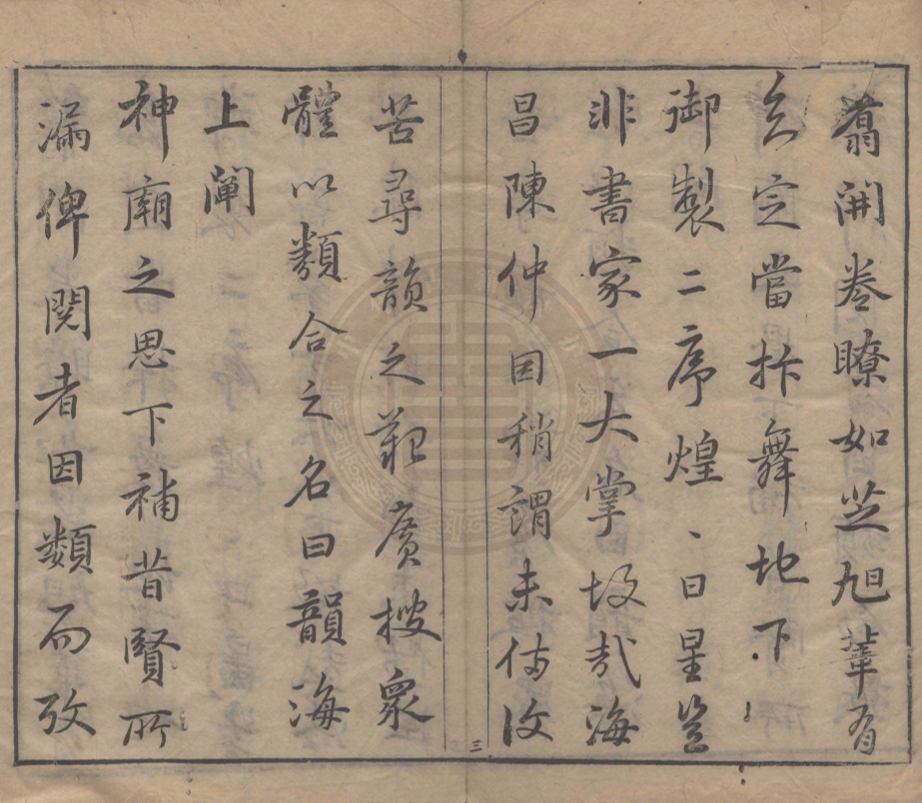 翦開卷瞭如芝旭輩有
知定當抃舞地下
御製二序煌、日星豈
非書家一大掌故哉海
昌陳仲因稍謂未備攷
苦尋韻之艱廣搜衆
體以類合之名曰韻海
上闡
神廟之思下補昔賢所
漏俾閱者因類而攷
三